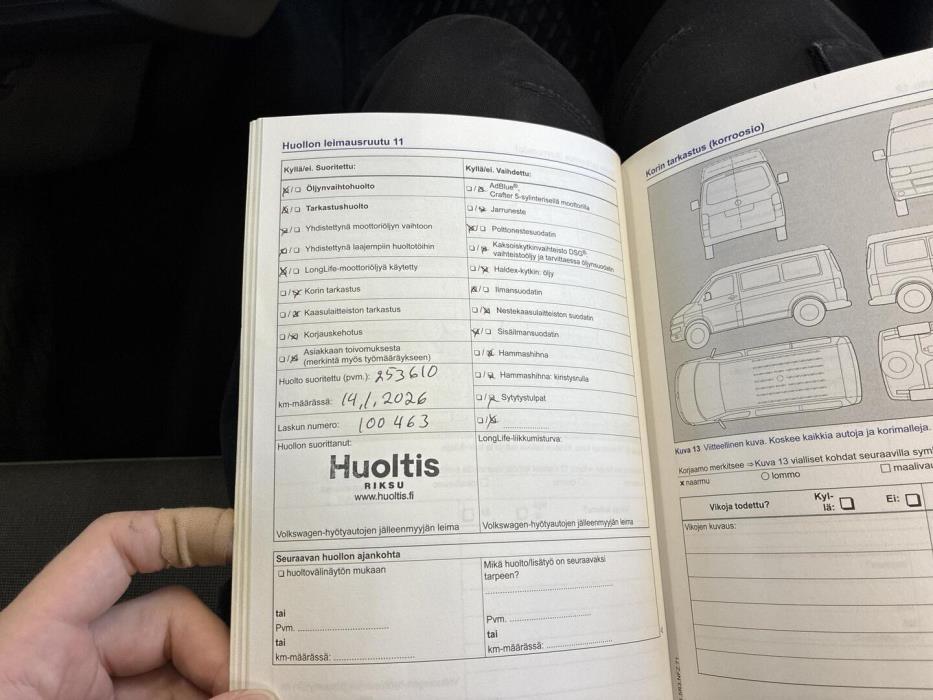 Huollon leimausruutu 11
Kyllä/ei. Suoritettu:
☒/☐ Öljynvaihtohuolto
☒/☐ Tarkastushuolto
☒/☐ Yhdistettynä moottoriöljyn vaihtoon
☒/☐ Yhdistettynä laajempiin huoltotöihin
☒/☐ LongLife-moottoriöljyä käytetty
☐/☒ Korin tarkastus
☐/☒ Kaasulaitteiston tarkastus
☐/☒ Korjauskehotus
☐/☒ Asiakkaan toivomuksesta
(merkintä myös työmääräykseen)
Huolto suoritettu (pvm.): 253610
km-määrässä: 14,1,2026
Laskun numero: 100463
Huollon suorittanut:
Huoltis
RIKSU
www.huoltis.fi
Volkswagen-hyötyautojen jälleenmyyjän leima
Kyllä/ei. Vaihdettu:
☐/☒ AdBlue®,
Crafter 5-sylinterisellä moottorilla
☐/☒ Jarruneste
☒/☐ Polttonestesuodatin
☐/☒ Kaksoiskytkinvaihteisto DSG®:
vaihteistoöljy ja tarvittaessa öljynsuodatin
☐/☒ Haldex-kytkin: öljy
☒/☐ Ilmansuodatin
☐/☒ Nestekaasulaitteiston suodatin
☒/☐ Sisäilmansuodatin
☐/☒ Hammashihna
☐/☒ Hammashihna: kiristysrulla
☐/☒ Sytytystulpat
☐/☒ ....................
LongLife-liikkumisturva:
Volkswagen-hyötyautojen jälleenmyyjän leima
Seuraavan huollon ajankohta
☐ huoltovälinäytön mukaan
tai
Pvm. ..............................
tai
km-määrässä: ..........................
Mikä huolto/lisätyö on seuraavaksi
tarpeen?
..........................................
Pvm. ..........................
tai
km-määrässä: ......................
Korin tarkastus (korroosio)
Kuva 13 Viitteellinen kuva. Koskee kaikkia autoja ja korimalleja.
Korjaamo merkitsee ⇒Kuva 13 vialliset kohdat seuraavilla
x naarmu
○ lommo
☐
Vikoja todettu?
Kyl-
lä: ☐
Ei: ☐
Vikojen kuvaus: